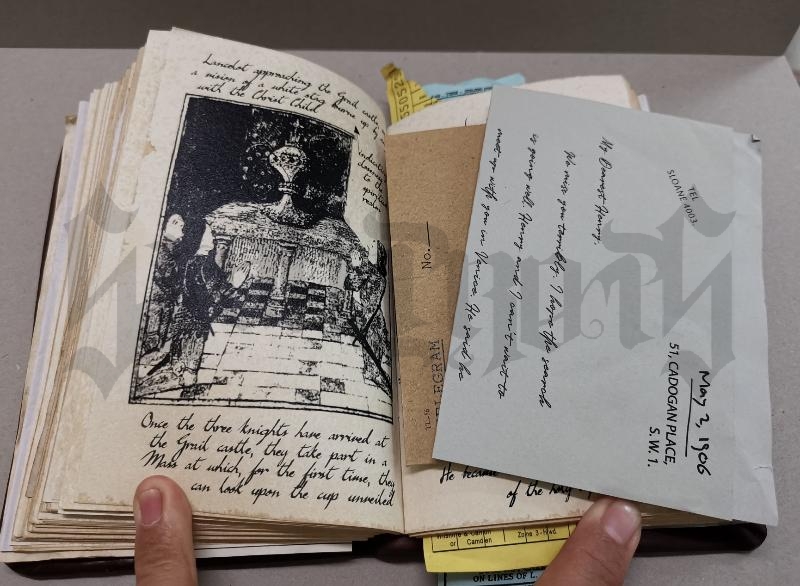 Lancelot approaching the Grail castle
a vision of a white stag borne up by
with the Christ Child
to the
realm
Once the three knights have arrived at
the Grail castle, they take part in a
Mass at which, for the first time, they
can look upon the cup unveiled
No.:
TEL
SLOANE 4003.
May 2, 1906
51, CADOGAN PLACE,
S.W.1.
My Dearest Henry,
We miss you terribly. I hope the search
is going well. Henry and I can't wait to
meet up with you in Venice. He said he
He became
of the holy
or Camden
ON LINES OF L.